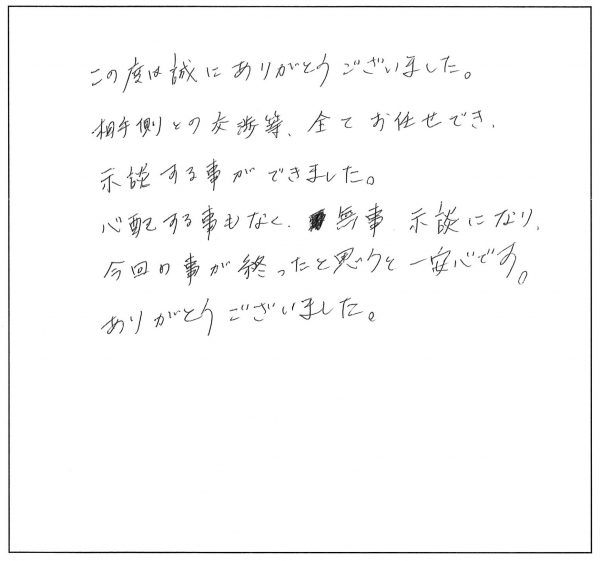 この度は誠にありがとうございました。
相手側との交渉等、全てお任せでき、
示談する事ができました。
心配する事もなく、無事、示談になり、
今回の事が終ったと思うと一安心です。
ありがとうございました。